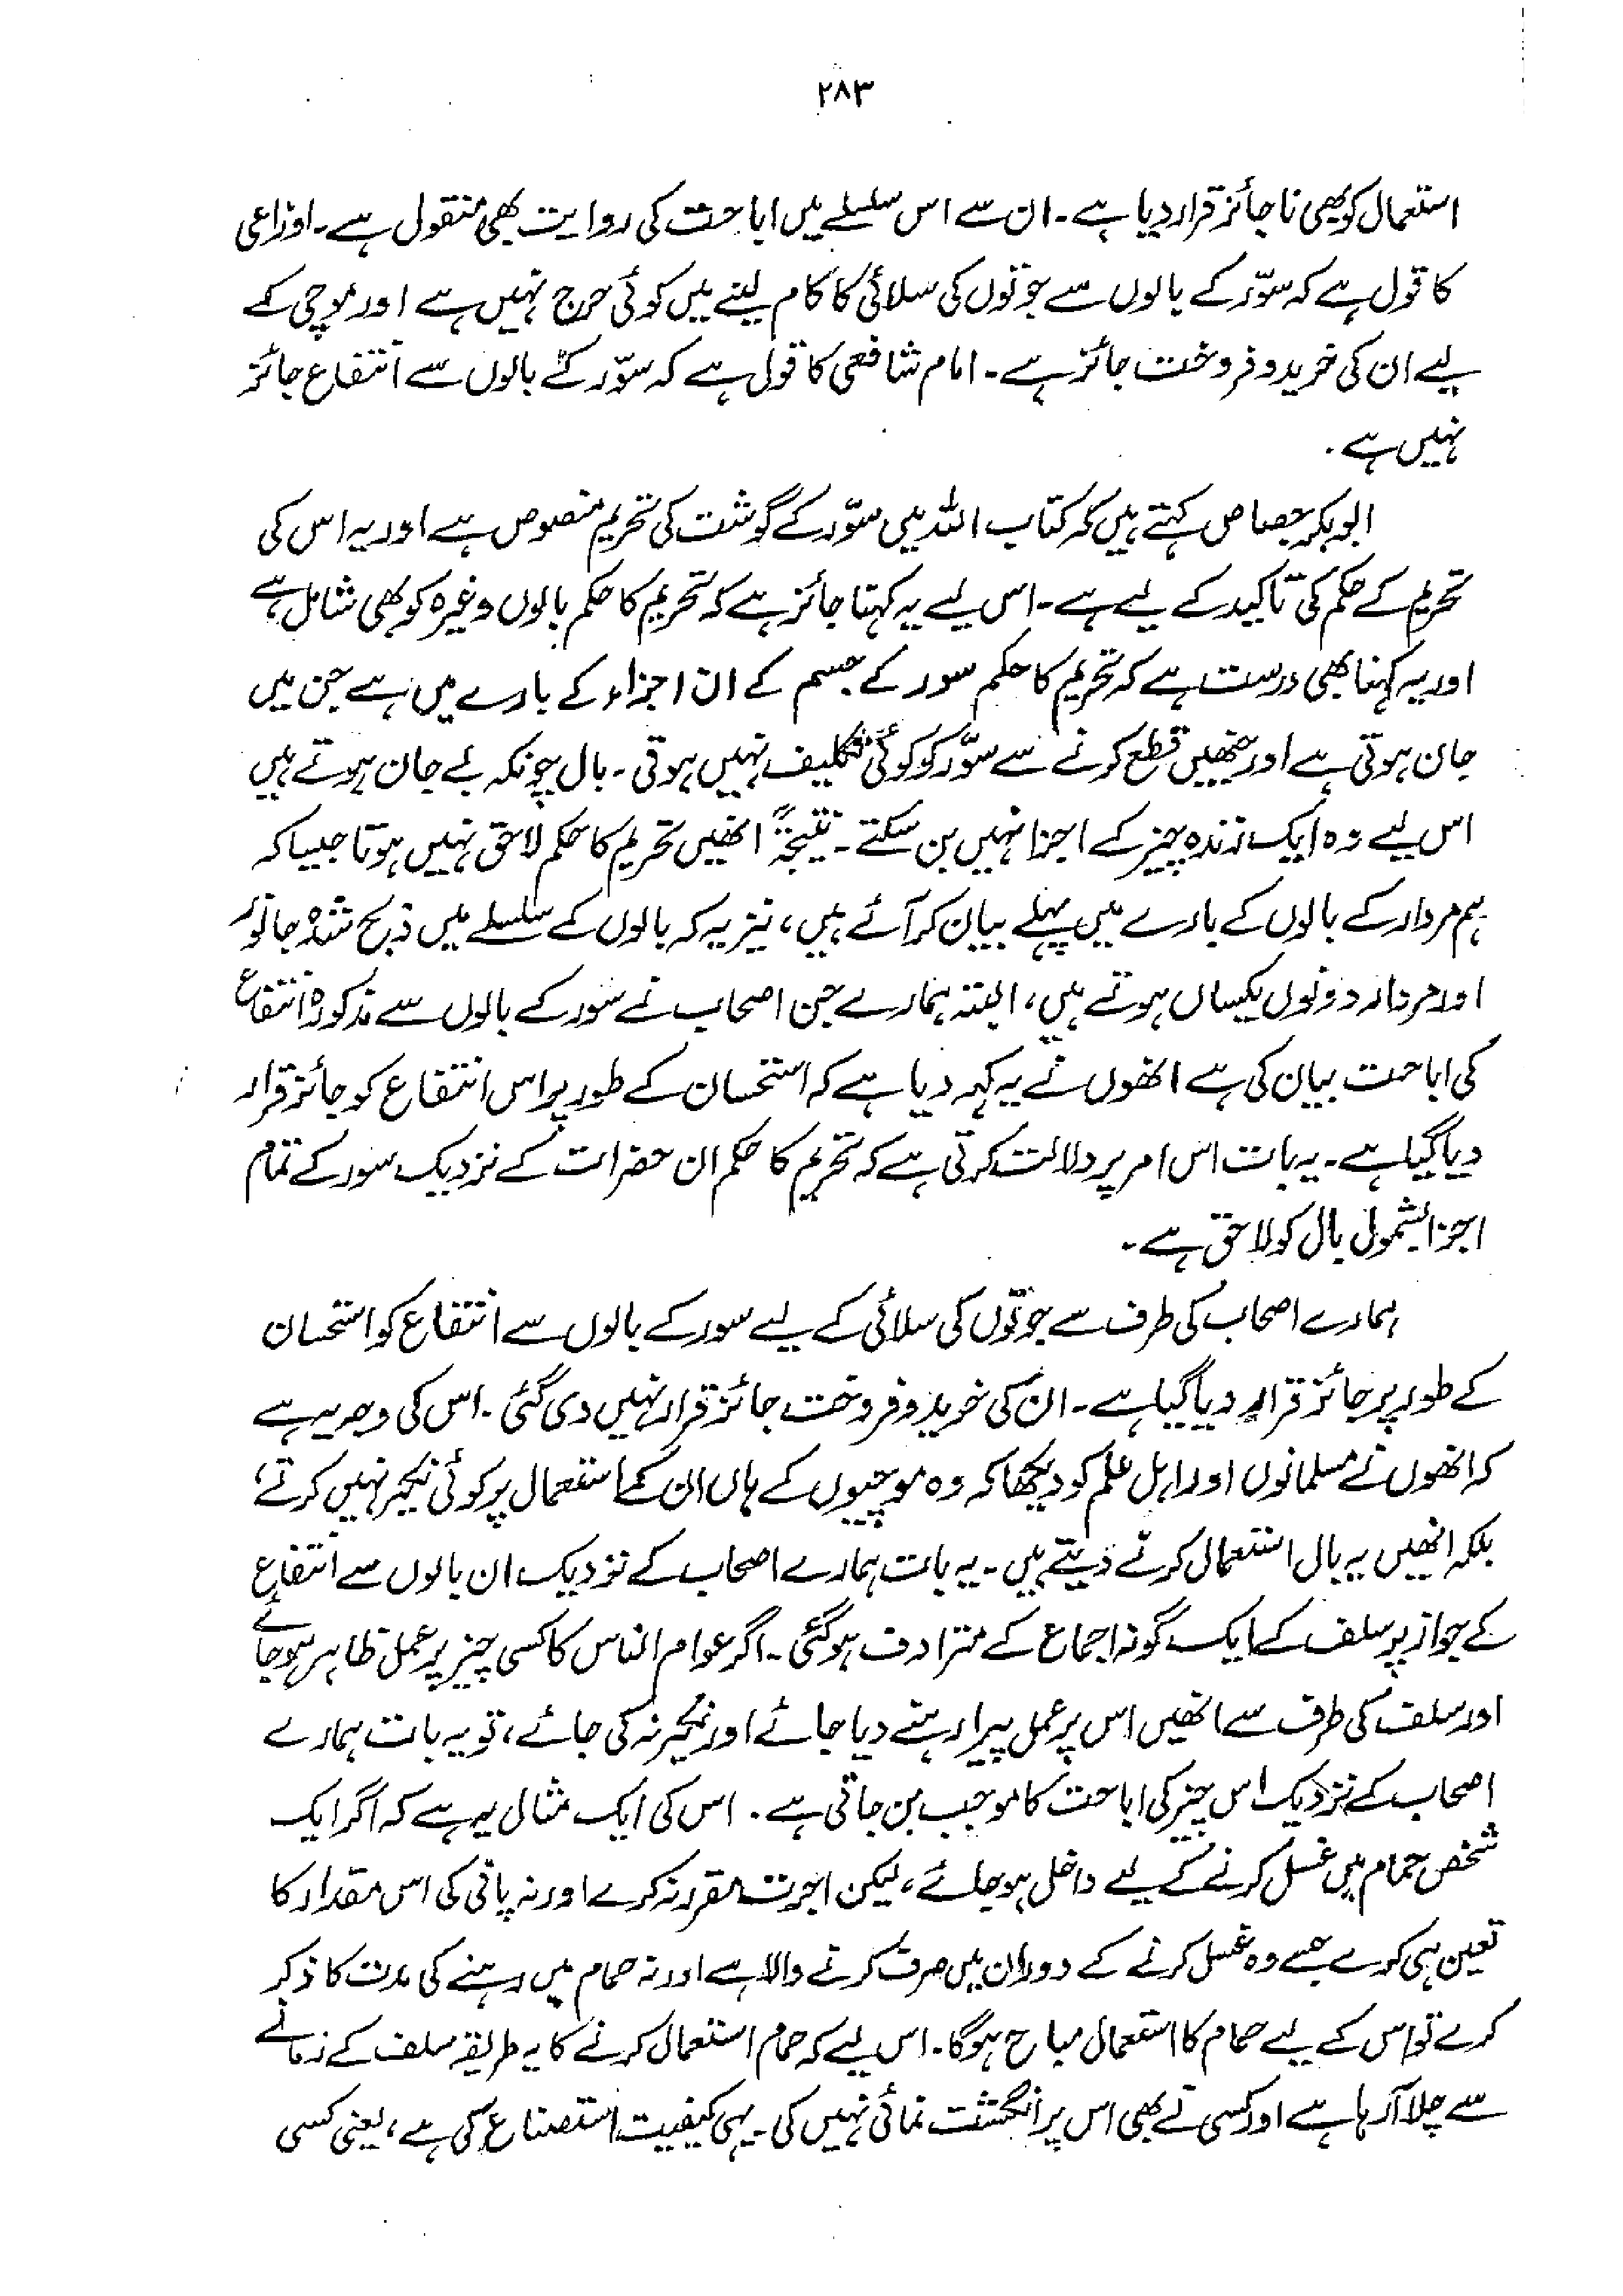 ۲۸۳
استعمال کو بھی ناجائز قرار دیا ہے۔ ان سے اس سلسلے میں اباحت کی روایت بھی منقول ہے۔ اوزاعی
کا قول ہے کہ سوّر کے بالوں سے جوتوں کی سلائی کا کام لینے میں کوئی حرج نہیں ہے اور موچی کے
لیے ان کی خرید و فروخت جائز ہے۔ امام شافعی کا قول ہے کہ سوّر کے بالوں سے انتفاع جائز
نہیں ہے۔
ابوبکر جصاص کہتے ہیں کہ کتاب اللہ میں سوّر کے گوشت کی تحریم منصوص ہے اور یہ اس کی
تحریم کے حکم کی تاکید کے لیے ہے۔ اس لیے یہ کہنا جائز ہے کہ تحریم کا حکم بالوں وغیرہ کو بھی شامل ہے
اور یہ کہنا بھی درست ہے کہ تحریم کا حکم سور کے جسم کے ان اجزاء کے بارے میں ہے جن میں
جان ہوتی ہے اور جنھیں قطع کرنے سے سوّر کو کوئی تکلیف نہیں ہوتی۔ بال چونکہ بے جان ہوتے ہیں
اس لیے وہ ایک زندہ چیز کے اجزا نہیں بن سکتے۔ نتیجۃً انھیں تحریم کا حکم لاحق نہیں ہوتا جیسا کہ
ہم مردار کے بالوں کے بارے میں پہلے بیان کر آئے ہیں، نیز یہ کہ بالوں کے سلسلے میں ذبح شدہ جانور
اور مردار دونوں یکساں ہوتے ہیں، البتہ ہمارے جن اصحاب نے سور کے بالوں سے مذکورہ انتفاع
کی اباحت بیان کی ہے انھوں نے یہ کہہ دیا ہے کہ استحسان کے طور پر اس انتفاع کو جائز قرار
دیا گیا ہے۔ یہ بات اس امر پر دلالت کرتی ہے کہ تحریم کا حکم ان حضرات کے نزدیک سور کے تمام
اجزا بشمول بال کو لاحق ہے۔
ہمارے اصحاب کی طرف سے جوتوں کی سلائی کے لیے سور کے بالوں سے انتفاع کو استحسان
کے طور پر جائز قرار دیا گیا ہے۔ ان کی خرید و فروخت جائز قرار نہیں دی گئی۔ اس کی وجہ یہ ہے
کہ انھوں نے مسلمانوں اور اہل علم کو دیکھا کہ وہ موچیوں کے ہاں ان کے استعمال پر کوئی نکیر نہیں کرتے،
بلکہ انھیں یہ بال استعمال کرنے دیتے ہیں۔ یہ بات ہمارے اصحاب کے نزدیک ان بالوں سے انتفاع
کے جواز پر سلف کے ایک گونہ اجماع کے مترادف ہو گئی۔ اگر عوام الناس کا کسی چیز پر عمل ظاہر ہو جائے
اور سلف کی طرف سے انھیں اس پر عمل پیرا رہنے دیا جائے اور نکیر نہ کی جائے، تو یہ بات ہمارے
اصحاب کے نزدیک اس چیز کی اباحت کا موجب بن جاتی ہے۔ اس کی ایک مثال یہ ہے کہ اگر ایک
شخص حمام میں غسل کرنے کے لیے داخل ہو جائے، لیکن اجرت مقرر نہ کرے اور نہ پانی کی اس مقدار کا
تعین ہی کرے جسے وہ غسل کرنے کے دوران میں صرف کرنے والا ہے اور نہ حمام میں رہنے کی مدت کا ذکر
کرے تو اس کے لیے حمام کا استعمال مباح ہوگا۔ اس لیے کہ حمام استعمال کرنے کا یہ طریقہ سلف کے زمانے
سے چلا آ رہا ہے اور کسی نے بھی اس پر انگشت نمائی نہیں کی۔ یہی کیفیت استصناع کی ہے، یعنی کسی